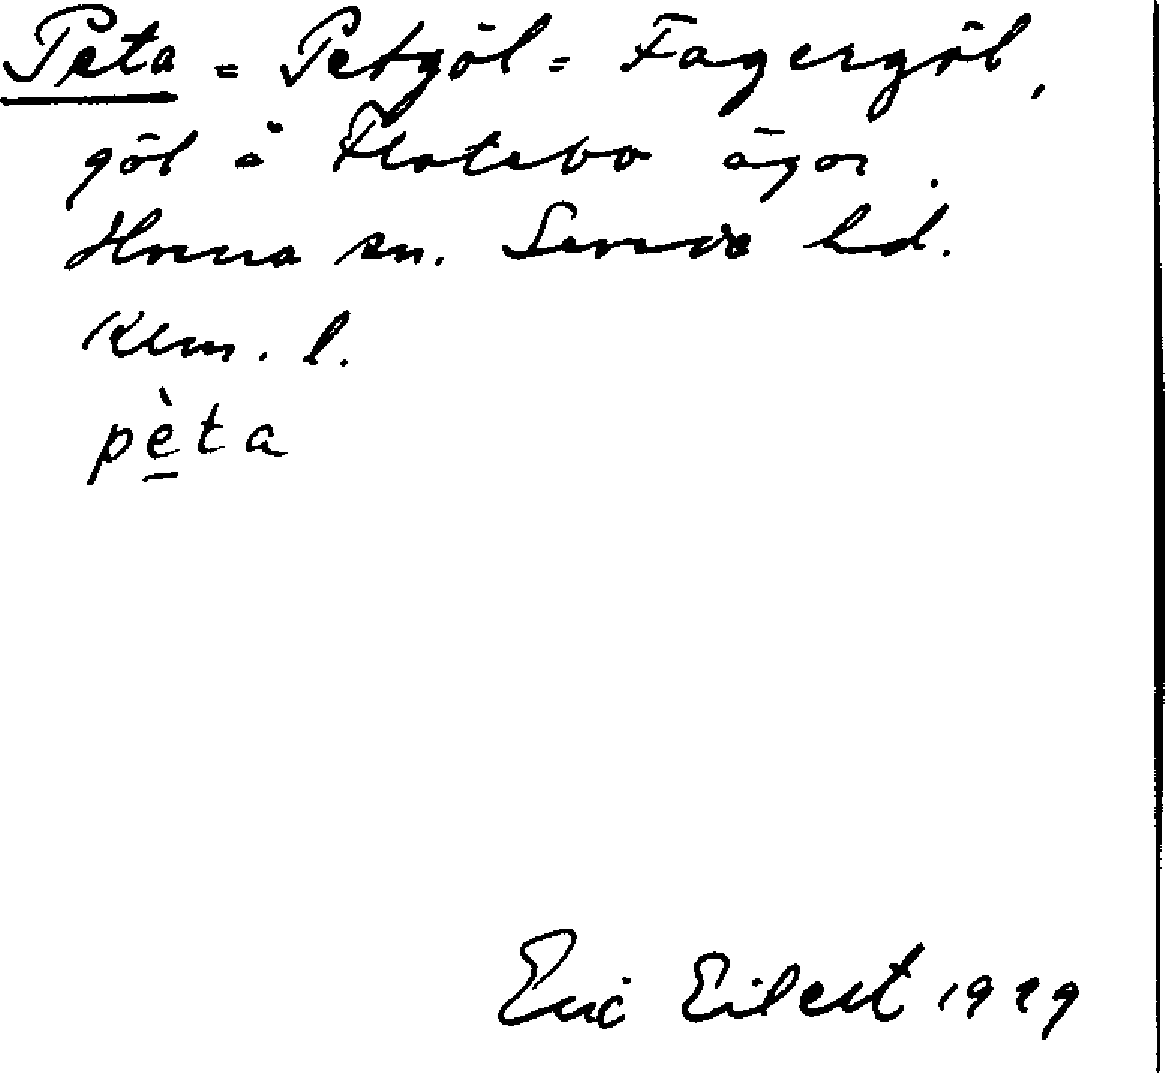 Peta = Petgöl = Fagergöl,
göl å Flatebo ägor.
Hvena sn. Sevede hd.
Klm. l.
pèta
Eric Eilert 1929